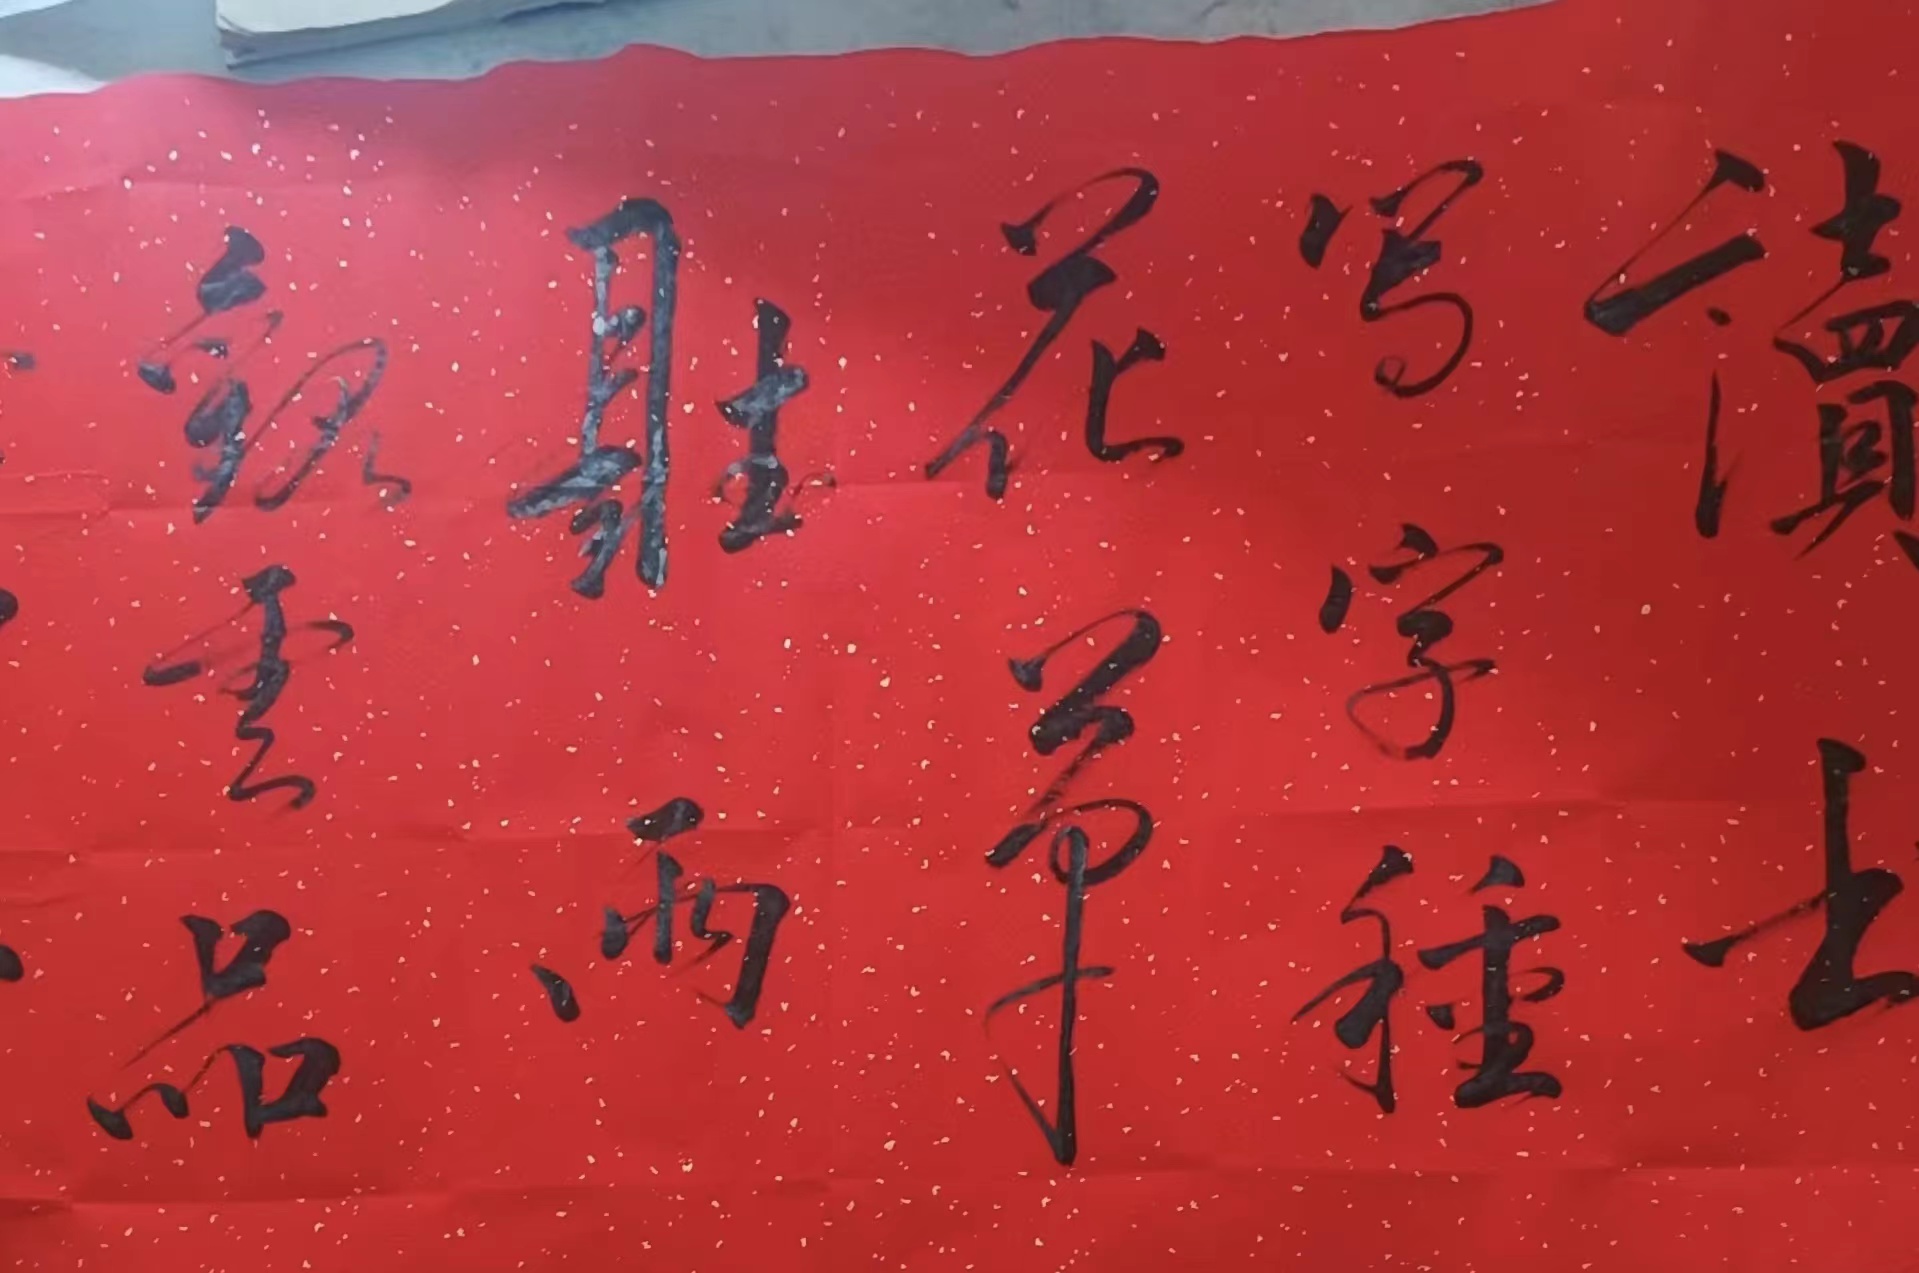 讀士
写字種
花草
聽雨
觀雲品